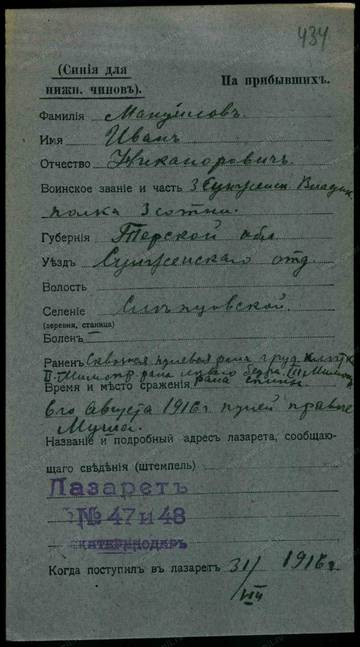 434
(Синія для
нижн. чиновъ).
На прибывшихъ.
Фамилія Мануиловъ.
Имя Иванъ
Отчество Никаноровичъ.
Воинское званіе и часть 3 Сунженск. Владик.
полка 3 сотни.
Губернія Терской обл
Уѣздъ Сунженскаго отд
Волость
Селеніе Слѣпцовской.
(деревня, станица)
Боленъ
Раненъ Сквозная пулевая рана груд. клѣтк
II рана бедра. III
Время и мѣсто сраженія рана спины
6го августа 1916 г. правѣе
Муша.
Названіе и подробный адресъ лазарета, сообщаю-
щаго свѣдѣнія (штемпель)
Лазаретъ
№ 47 и 48
ЕКАТЕРИНОДАРЪ
Когда поступилъ въ лазаретъ 31/VIII 1916 г.